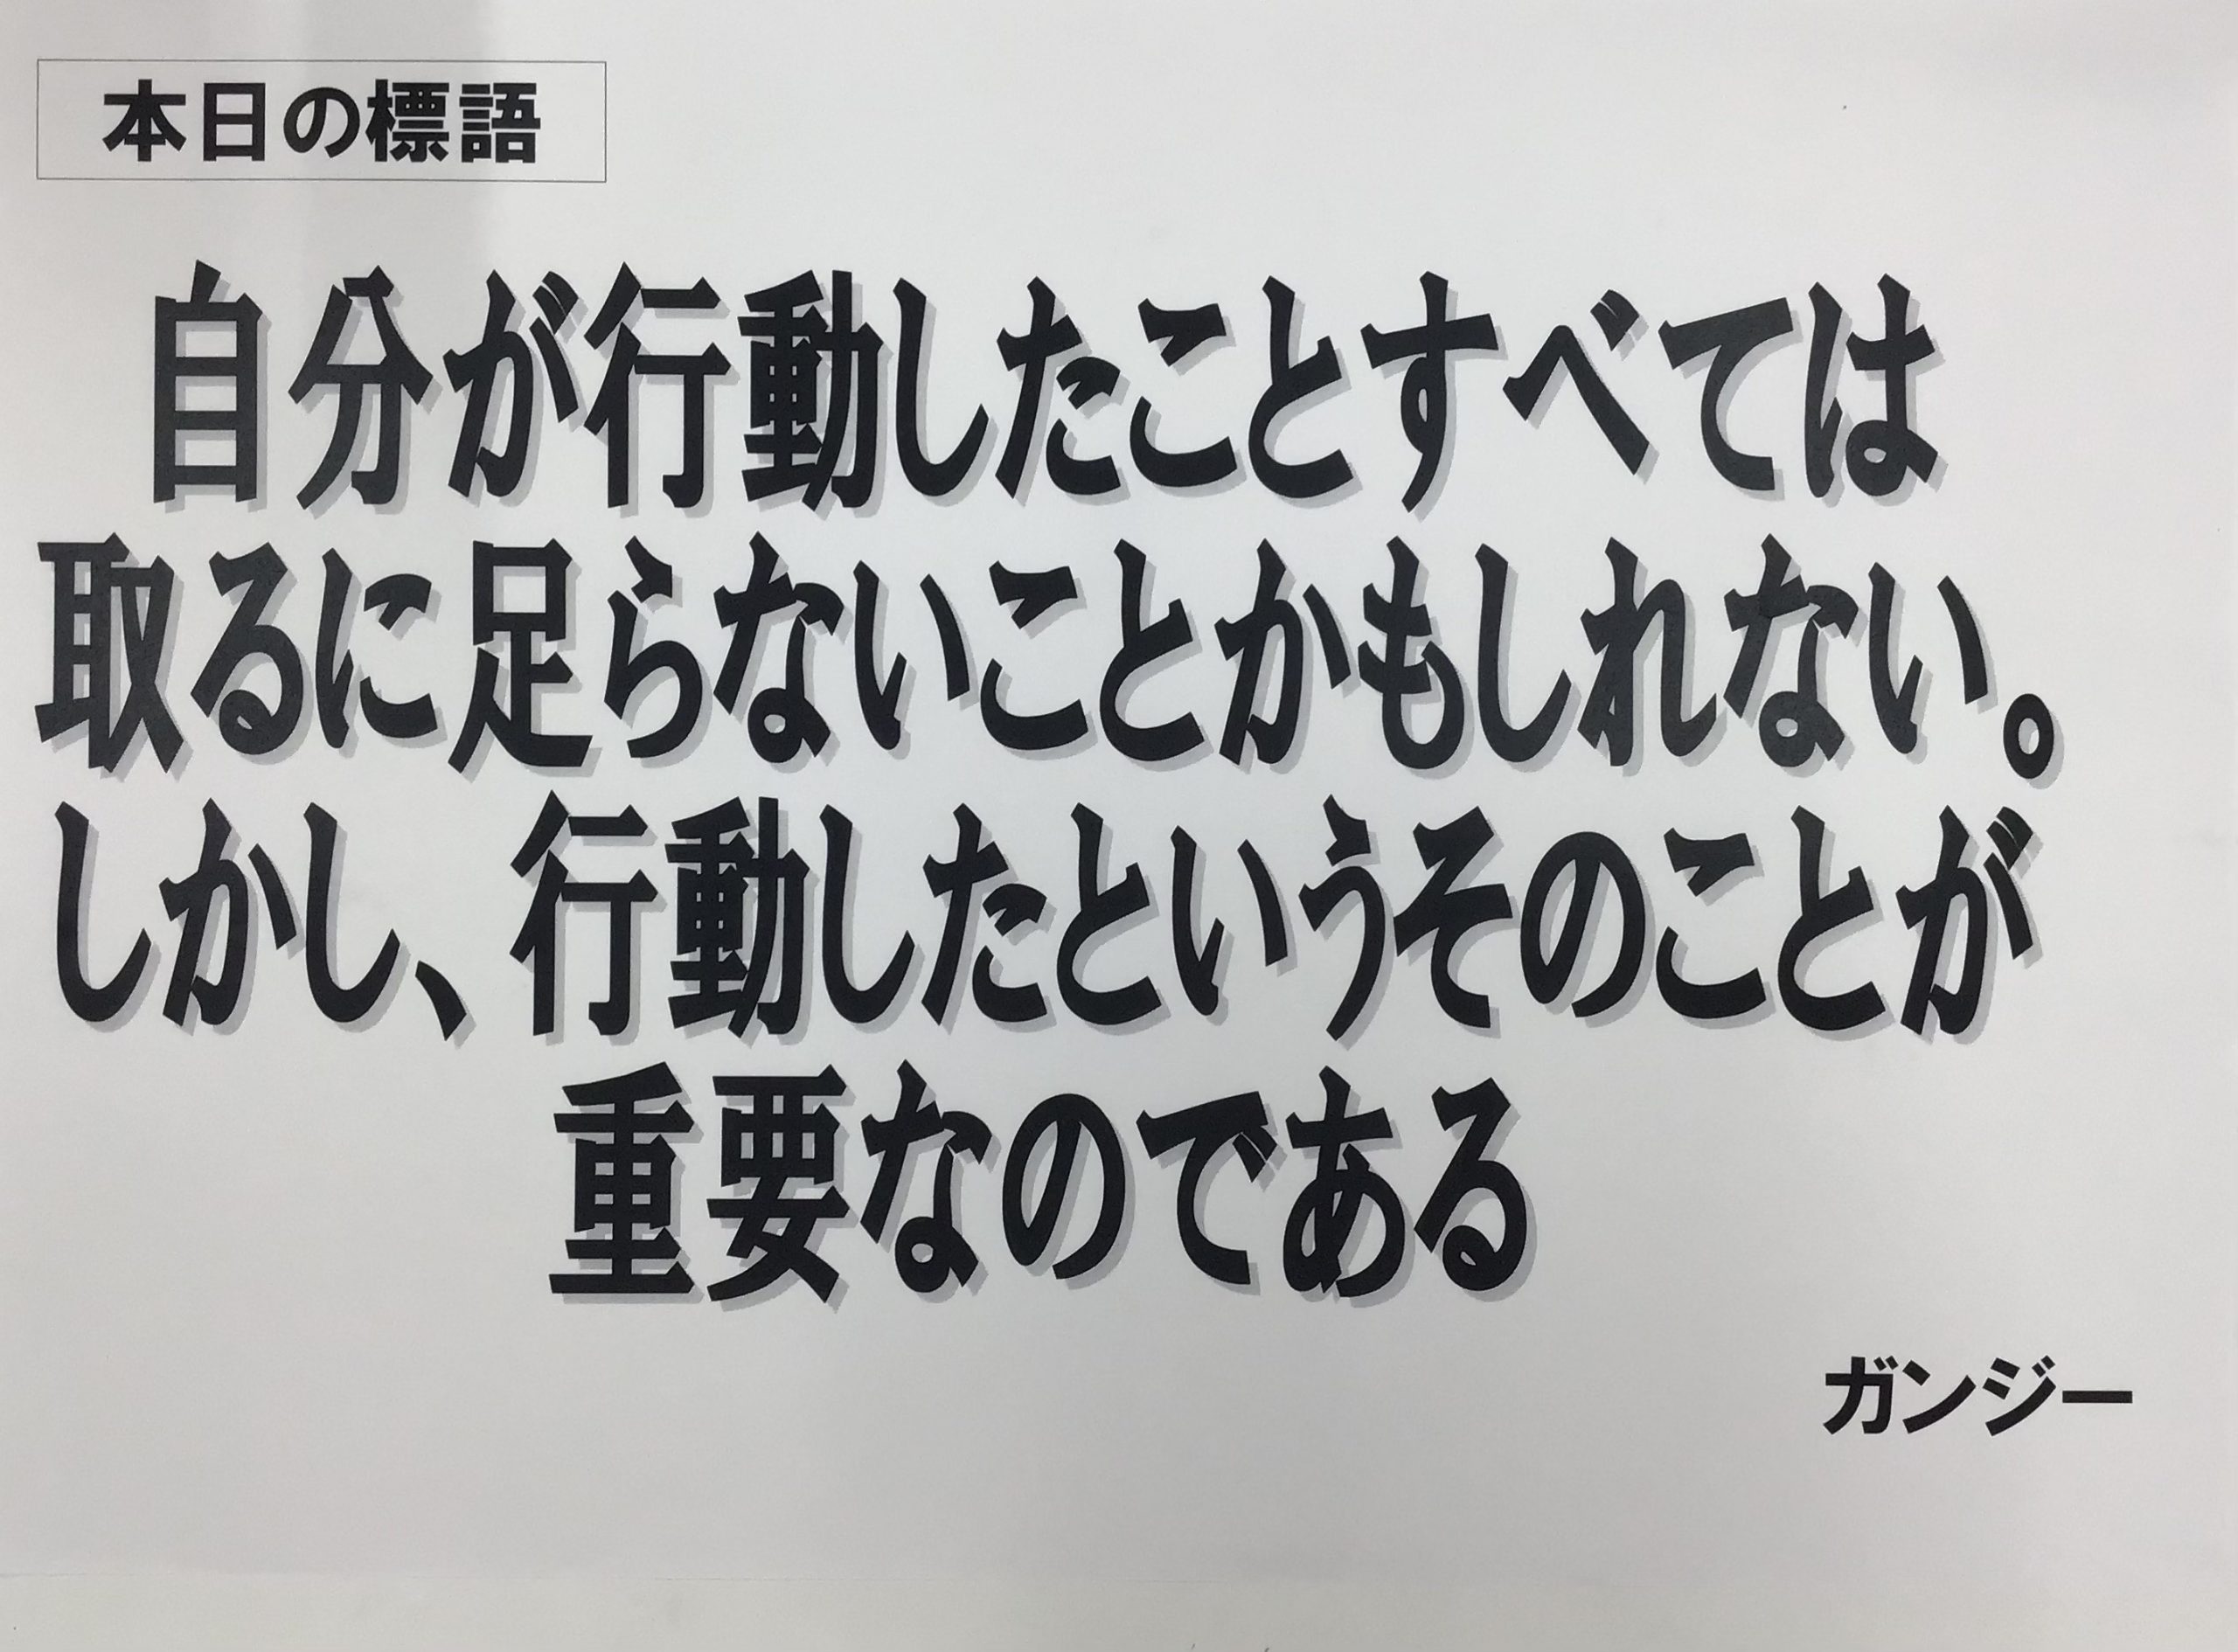 本日の標語
自分が行動したことすべては
取るに足らないことかもしれない。
しかし、行動したというそのことが
重要なのである
ガンジー